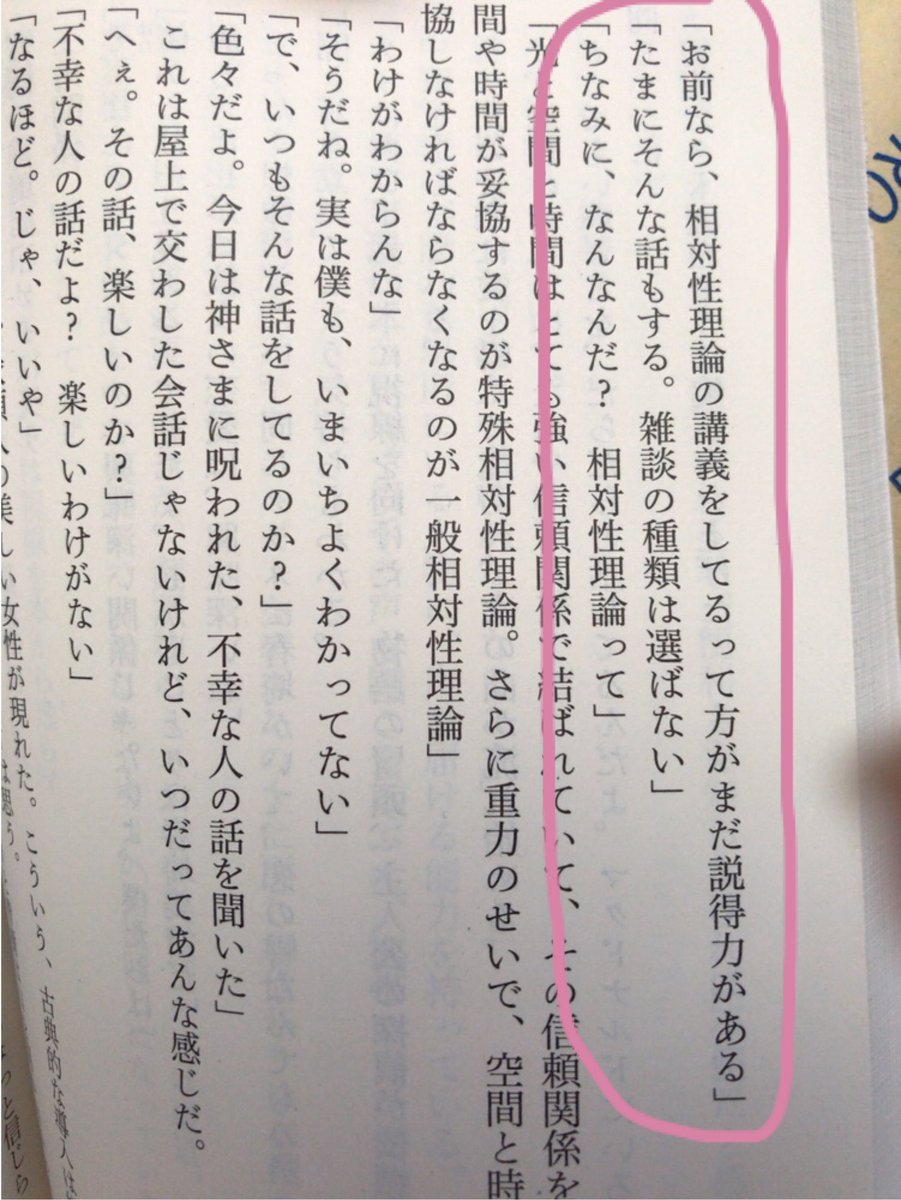 「お前なら、相対性理論の講義をしてるって方がまだ説得力がある」
「たまにそんな話もする。雑談の種類は選ばない」
「ちなみに、なんなんだ? 相対性理論って」
「光と空間と時間はとても強い信頼関係で結ばれていて、その信頼関係を
間や時間が妥協するのが特殊相対性理論。さらに重力のせいで、空間と時
協しなければならなくなるのが一般相対性理論」
「わけがわからんな」
「そうだね。実は僕も、いまいちよくわかってない」
「で、いつもそんな話をしてるのか?」
「色々だよ。今日は神さまに呪われた、不幸な人の話を聞いた」
これは屋上で交わした会話じゃないけれど、いつだってあんな感じだ。
「へぇ。その話、楽しいのか?」
「不幸な人の話だよ? 楽しいわけがない」
「なるほど。じゃ、いいや」
い女性が現れた。こういう、古典的な導入は